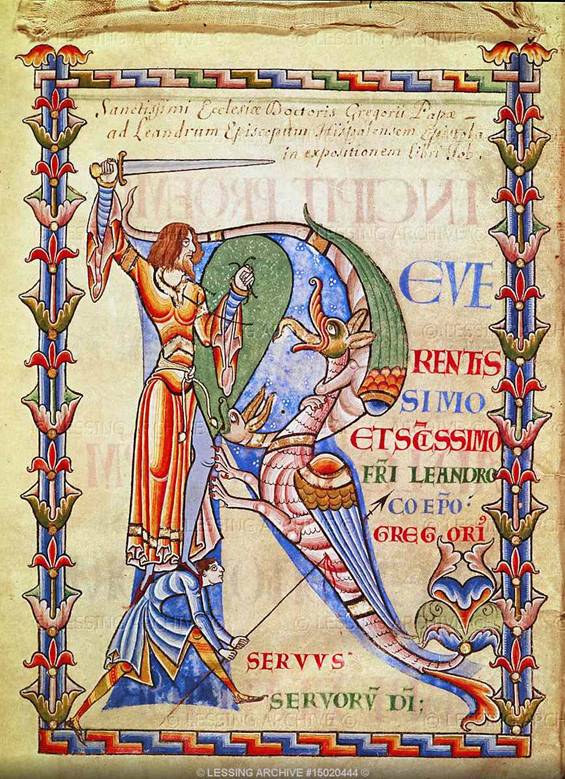 Sanctissimi Ecclesiæ Doctoris Gregorii Papæ
ad Leandrum Episcopum Hispalensem Epistola
in expositionem libri Iob.
REVE
RENTIS
SIMO
ET SC̄ISSIMO
FR̄I LEANDRO
COEP̄O:
GREGORI'
SERVVS
SERVORŪ DĪ:
© LESSING ARCHIVE #15020444 ©